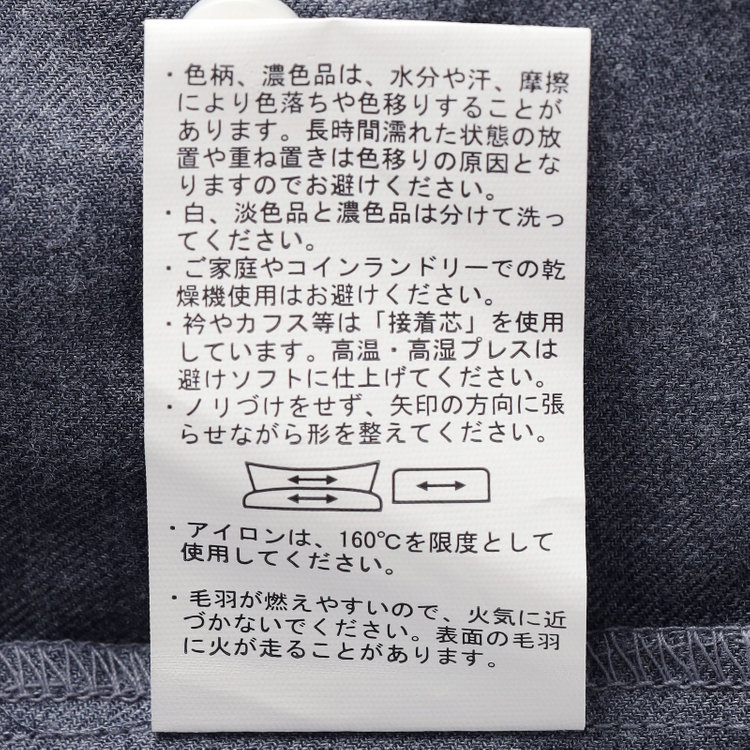 ・色柄、濃色品は、水分や汗、摩擦
により色落ちや色移りすることが
あります。長時間濡れた状態の放
置や重ね置きは色移りの原因とな
りますのでお避けください。
・白、淡色品と濃色品は分けて洗っ
てください。
・ご家庭やコインランドリーでの乾
燥機使用はお避けください。
・衿やカフス等は「接着芯」を使用
しています。高温・高湿プレスは
避けソフトに仕上げてください。
・ノリづけをせず、矢印の方向に張
らせながら形を整えてください。
・アイロンは、160℃を限度として
使用してください。
・毛羽が燃えやすいので、火気に近
づかないでください。表面の毛羽
に火が走ることがあります。